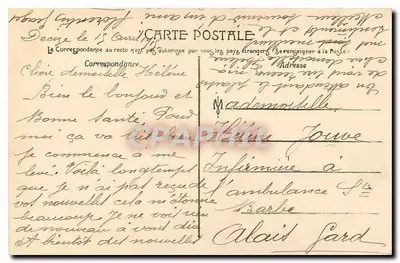 Decize le 15 Avril
CARTE POSTALE
La Correspondance au recto n'est pas autorisée par tous les pays étrangers (Se renseigner à la Poste)
Correspondance
Adresse
Chère demoiselle Hélène
Bien le bonjour et
Bonne Santé. Pour
moi ça va très
je commence a me
levé. Voilà longtemps
que je n'ai pas reçu de
vos nouvelles cela m'étonne
beaucoup. Je ne voit rien
de nouveau à vous dire
A bientôt des nouvelles
Mademoiselle
Hélène Jouve
Infirmière à
l'ambulance Ste
Barbe
Alais Gard
En attendant le plaisir
de vous
chère demoiselle